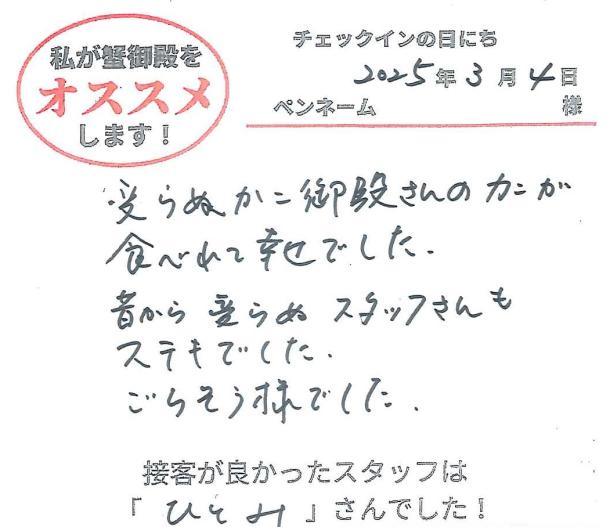 私が蟹御殿を
オススメ
します！
チェックインの日にち
2025年3月4日
ペンネーム 様
変らぬかに御殿さんのカニが
食べれて幸せでした.
昔から変らぬスタッフさんも
ステキでした.
ごちそう様でした.
接客が良かったスタッフは
「ひとみ」さんでした！